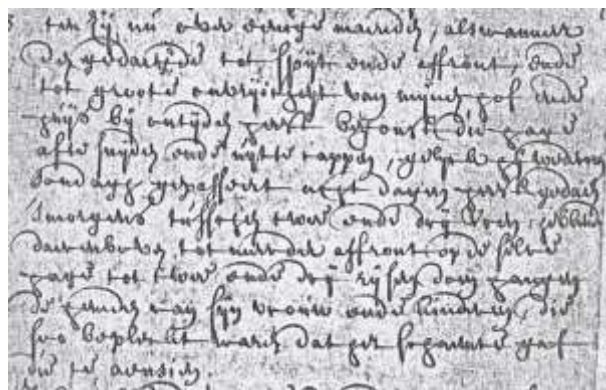 ten zij nu over eenige maenden, als wanneer
den gedaechde tot spijt ende affront, ende
tot groote onvrijicheyt van mijnen hof ende
huijs bij ontijden heeft begonst die hage
afte snijden ende uijtte cappen, gelijck
sondagh gepasseert acht dagen heeft gedaen
smorgens tusschen twee ende drij uren, hebbende
daerenboven tot meerder affront op de selve
hage tot twee ende drij rijsen doen hangen
de van sijn vrouw ende kinderen, die
soo beplect waren dat het schande gaf
die te aensien.